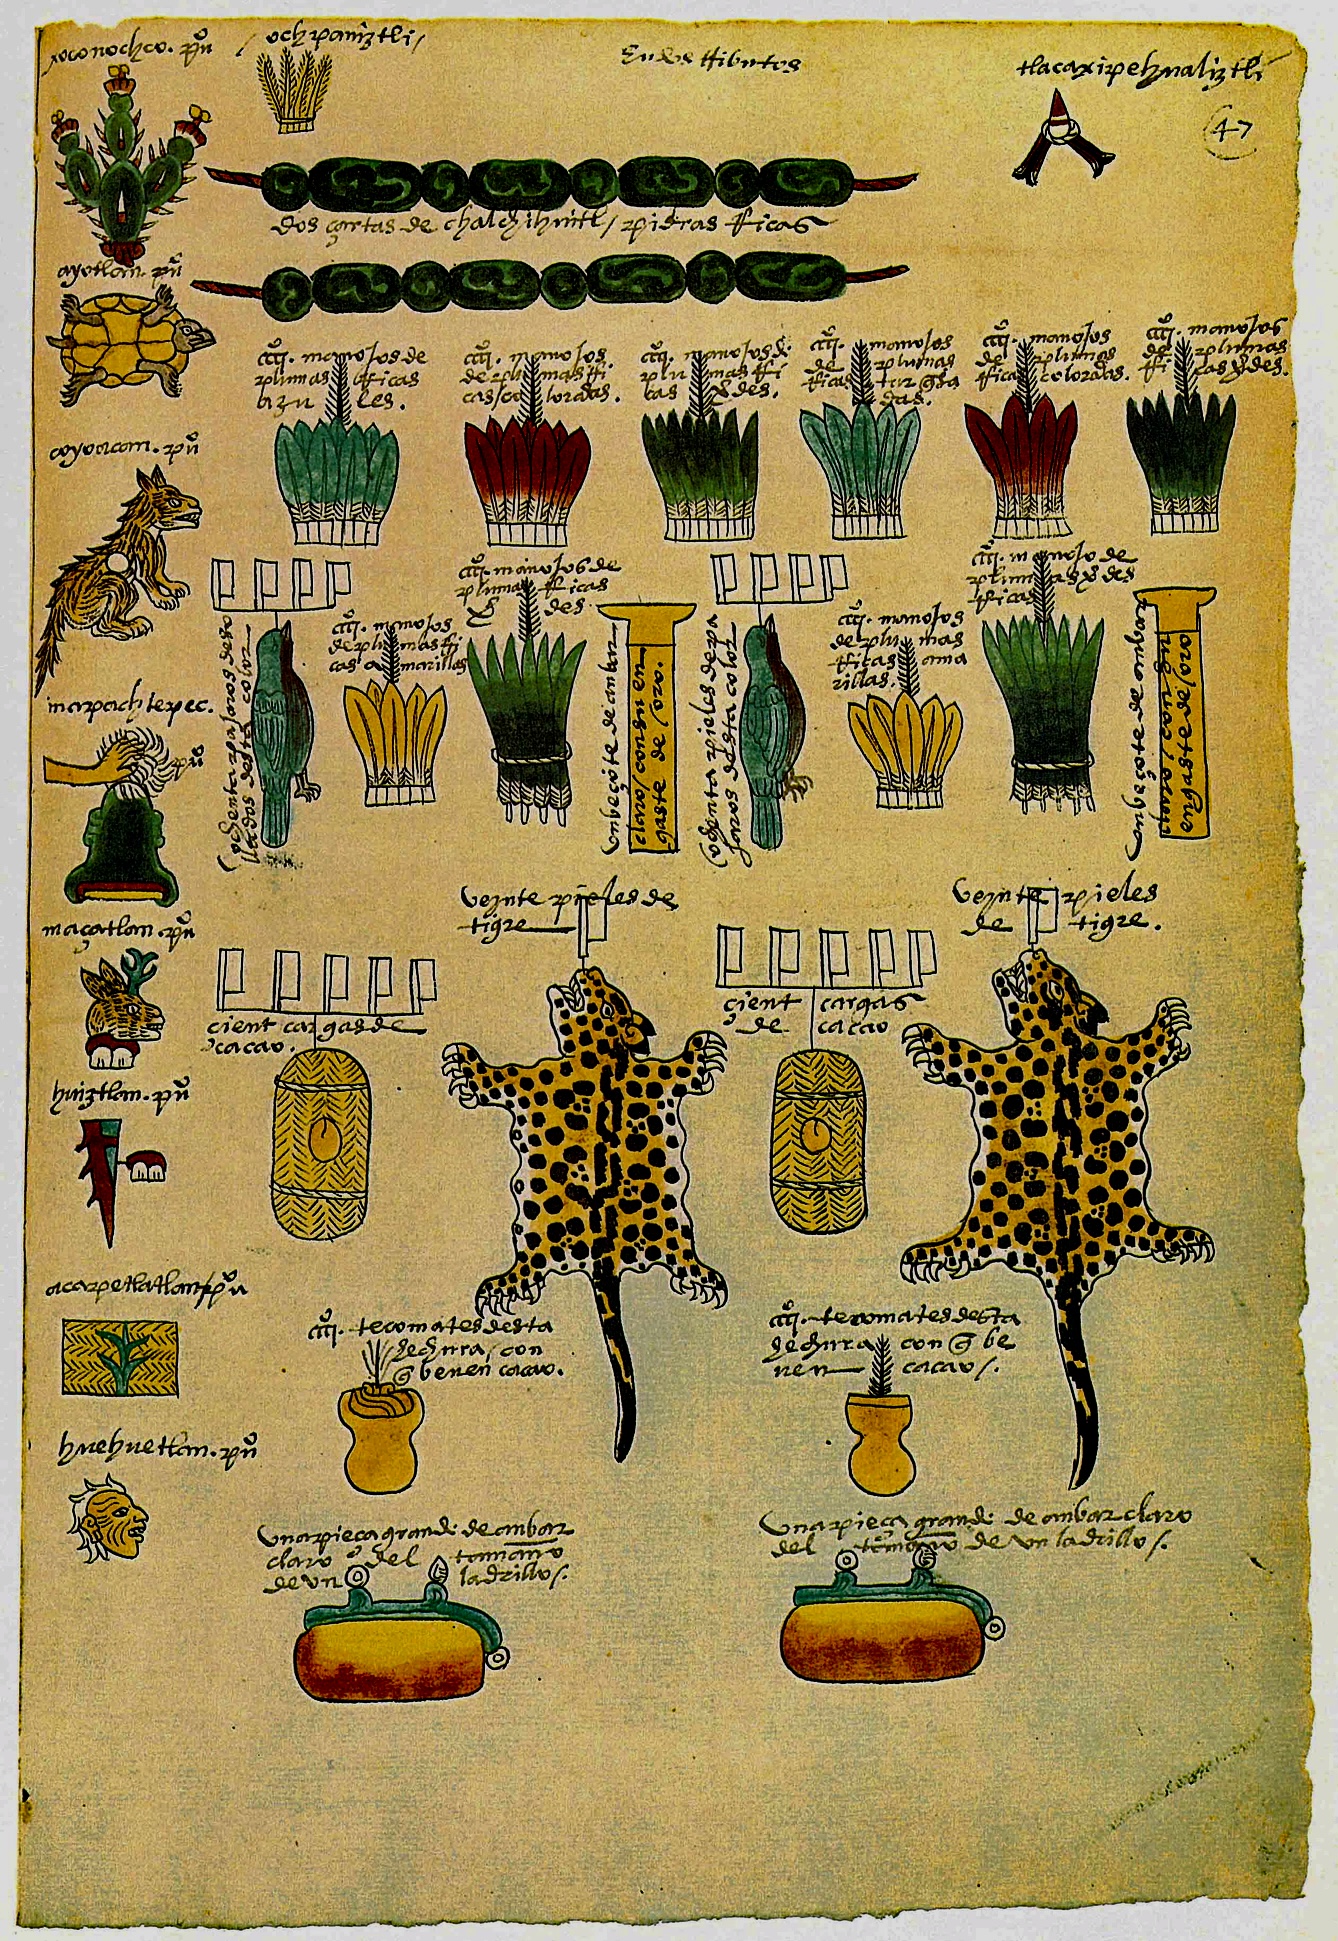 xoconochco. pu͞o
/ ochpaniztli /
En dos tributos
tlacaxipehualiztli
47
dos sartas de chalchihuitl / piedras rricas
ayotlan. pu͞o
cccc͞o. manojos de
plumas rricas
azules.
cccc͞o. manojos
de plumas rri
cas coloradas.
cccc͞o. manojos de
plumas rri
cas v͞des.
cccc͞o. manojos
de plumas
rricas turq͞sa
das.
cccc͞o. manojos
de plumas
rricas coloradas.
cccc͞o. manojos
de plumas
rricas v͞des.
coyoacan. pu͞o
ochenta pajaros deso
llados desta color
cccc͞o. manojos
de plumas rri
cas amarillas
cccc͞o. manojos de
plumas rricas
v͞des
un beçote de ambar
claro / con su en
gaste de / oro.
ochenta pieles de pa
jaros desta color
cccc͞o. manojos
de plumas
rricas ama
rillas.
cccc͞o. manojo de
plumas v͞des
rricas
un beçote de ambar
claro / con su
engaste de / oro
mapachtepec.
pu͞o
maçatlan. pu͞o
veynte pieles de
tigre
veynte pieles
de tigre.
cient cargas de
cacao.
cient cargas
de cacao
huiztlan. pu͞o
acapetlatlan / pu͞o
cccc͞o. tecomates desta
hechura / con
q͞ beuen cacao.
cccc͞o. tecomates desta
hechura con q͞ be
uen cacao /.
huehuetlan. pu͞o
una pieça grande de ambar
claro del tamaño
de un ladrillo /.
una pieça grande de ambar claro
del tamaño de un ladrillo /.